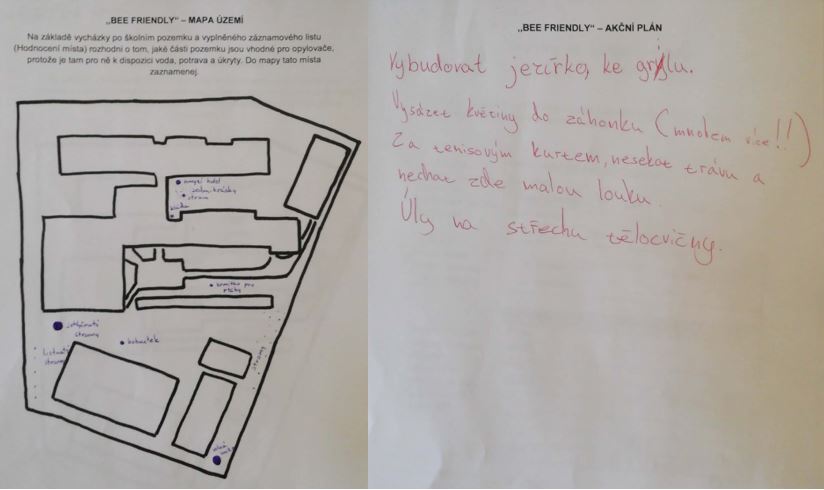 „BEE FRIENDLY“ – MAPA ÚZEMÍ
Na základě vycházky po školním pozemku a vyplněného záznamového listu
(Hodnocení místa) rozhodni o tom, jaké části pozemku jsou vhodné pro opylovače,
protože je tam pro ně k dispozici voda, potrava a úkryty. Do mapy tato místa
zaznamenej.
hmyzí hotel
stromy
krmítko pro
ptáky
stromy
bohoutek
Listnaté
stromy
stromy
„BEE FRIENDLY“ – AKČNÍ PLÁN
Vybudovat jezírko, ke grilu.
Vysázet květiny do záhonku (mnohem více!!)
Za tenisovým kurtem, nesekat trávu a
nechat zde malou louku.
Úly na střechu tělocvičny.